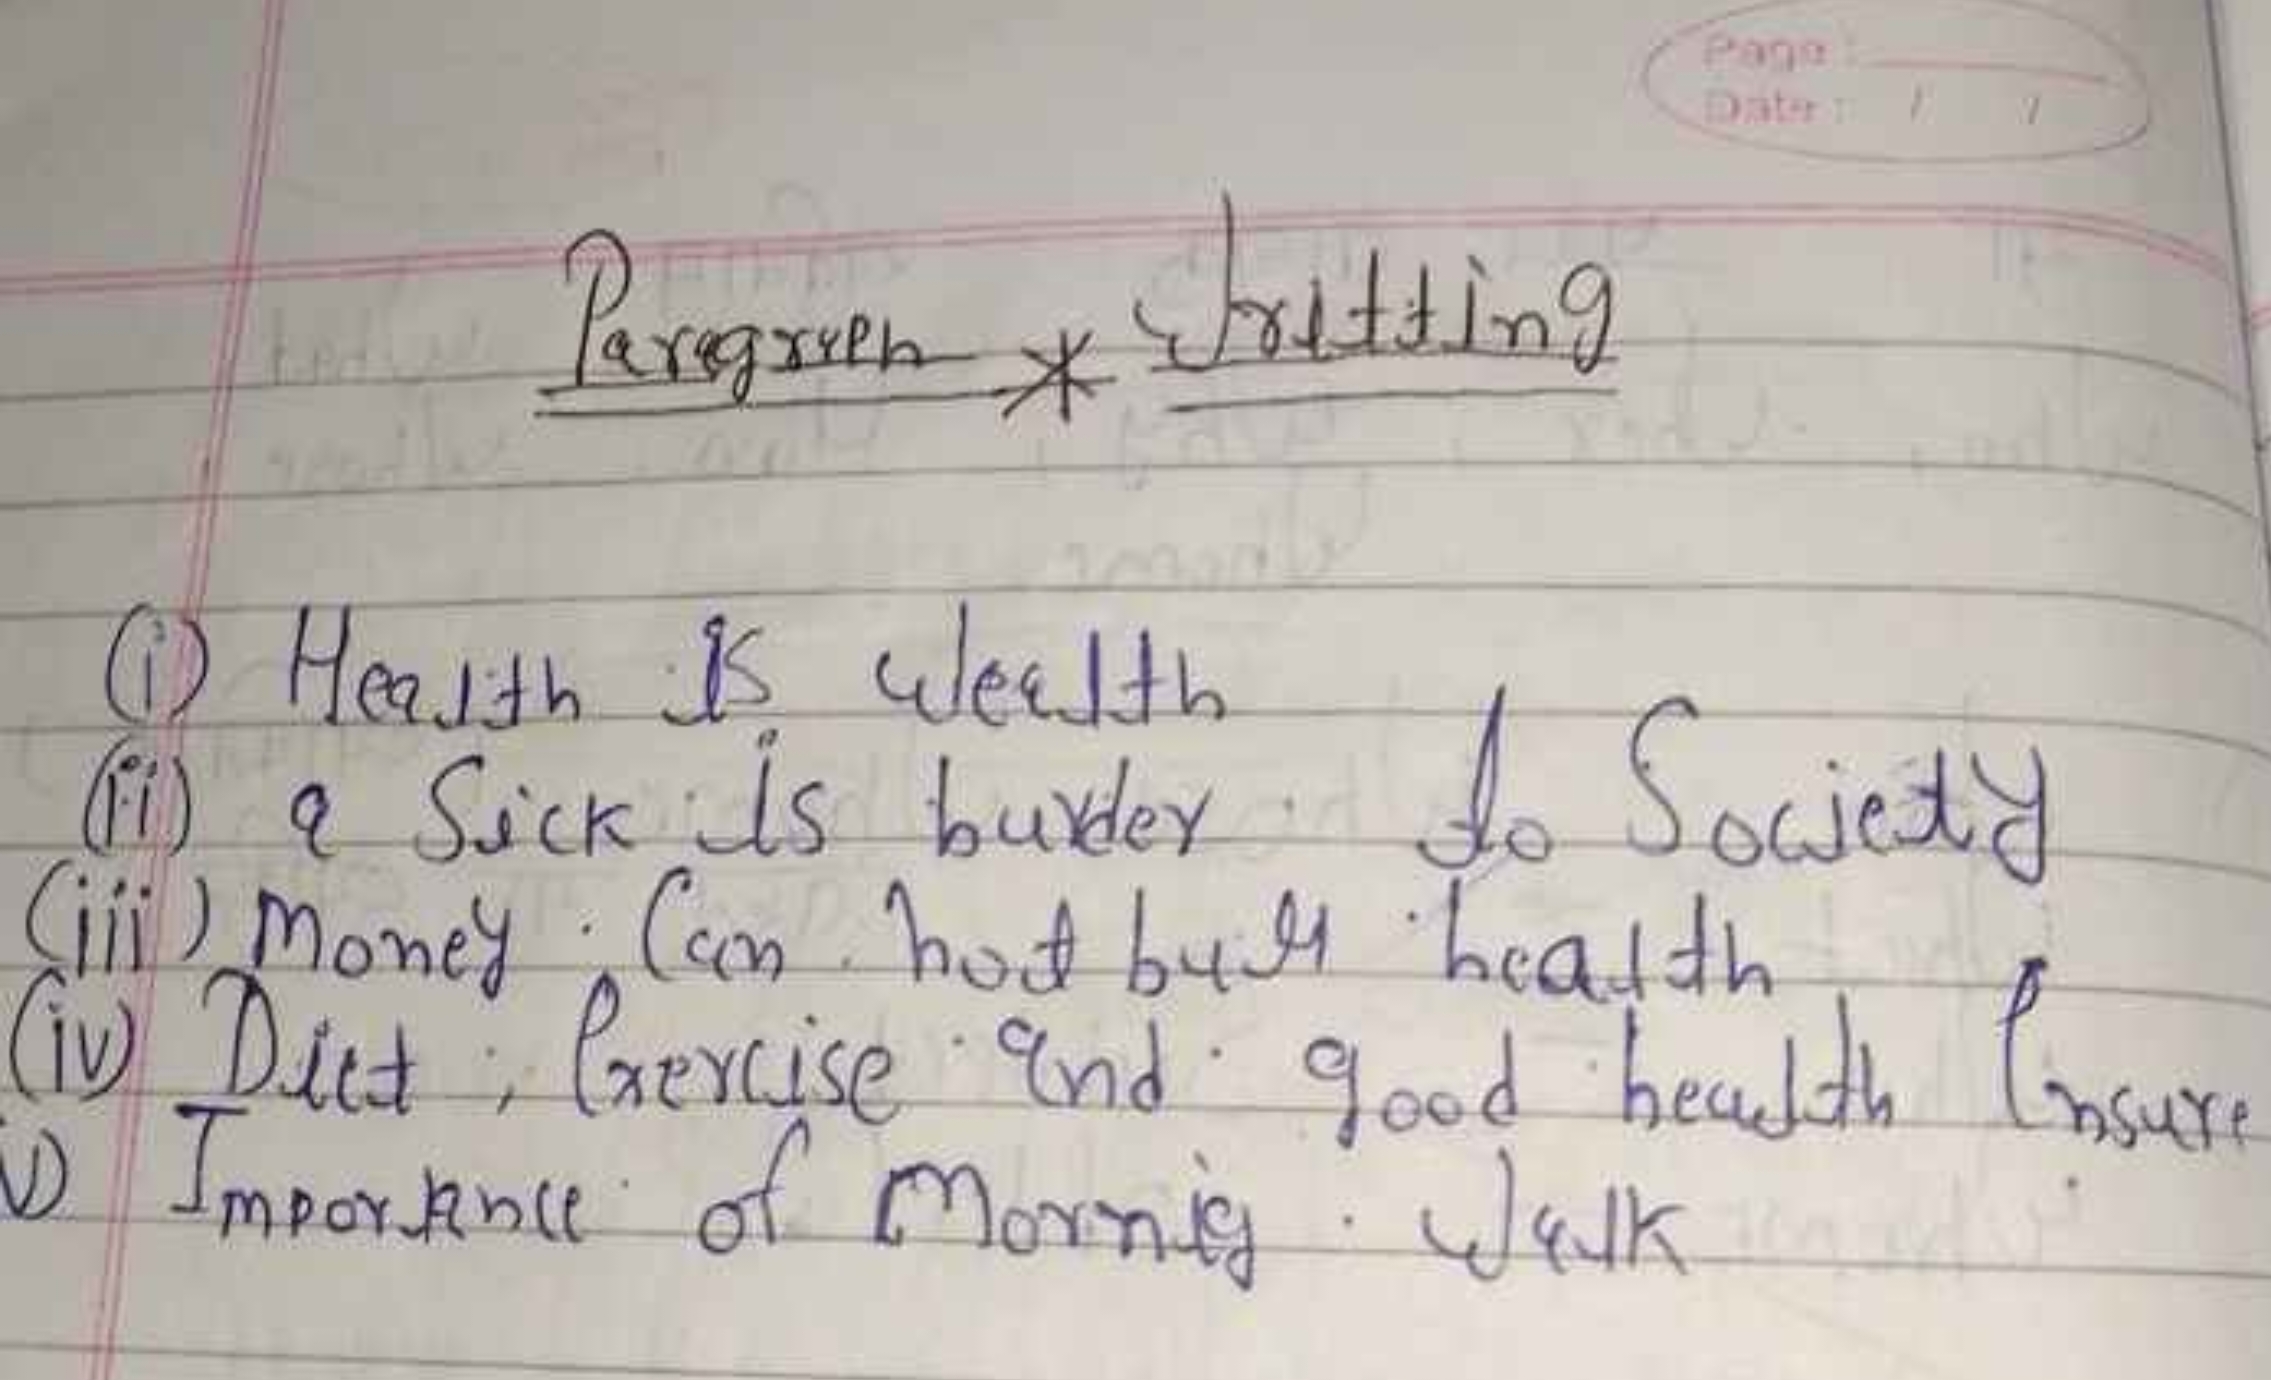 Page :
Date : / /
Paragraph * Writting
(i) Health is Wealth
(ii) a Sick is burder to Society
(iii) Money Can not buy health
(iv) Diet, Exercise and good health Ensure
v) Importance of Mornig Walk